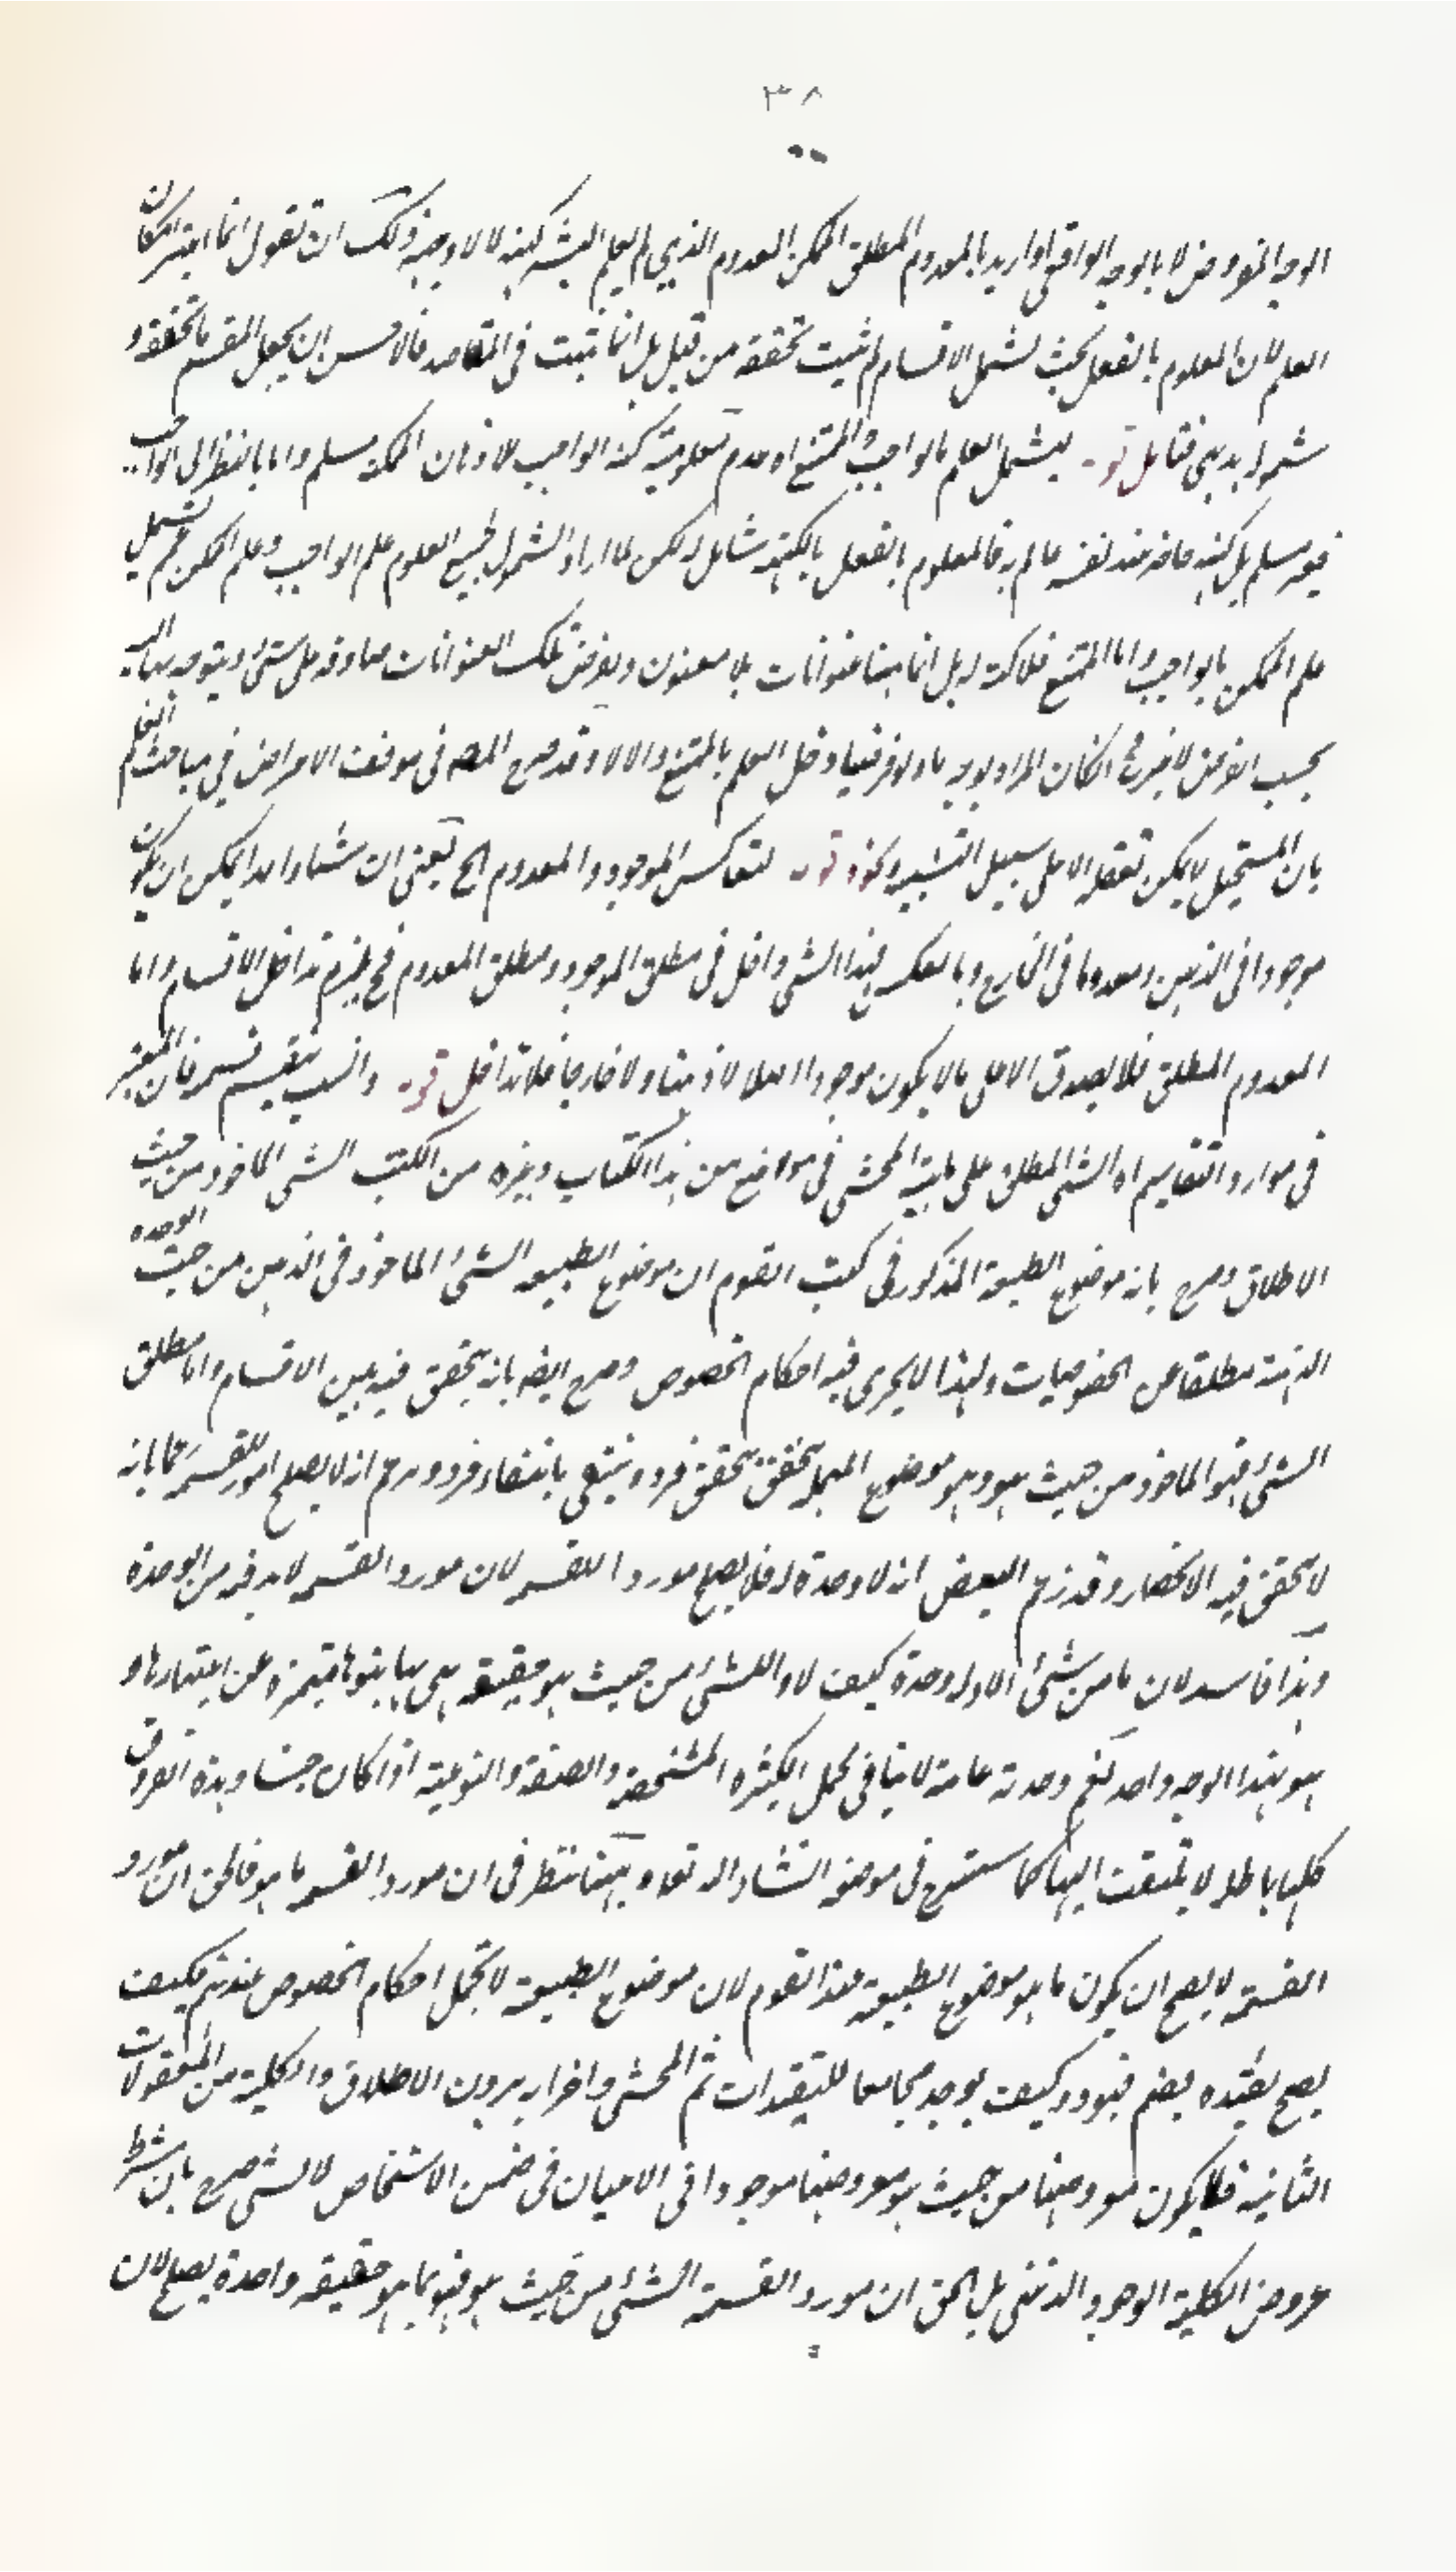 ٣٨
الوجه المفروض لا بالوجه الواقعي او اريد بالمعدوم المطلق الممكن المعدوم الذي لم يعلم البشر كنهه لا لا وجهه ولك ان تقول انما اعتبر امكان
العلم لان المعلوم بالفعل بحيث يشمل الاقسام لم يثبت تحققه من قبل بل انما يثبت في المقاصد فالاحسن ان يجعل المقسم ما تحققه و
شموله بديهي فتامل قوله ليشمل العلم بالواجب والممتنع اه عدم معلومية كنه الواجب للاذهان الممكنة مسلم واما بالنظر الى الواجب
فغير مسلم بل كنهه حاضر عند نفسه عالم به فالمعلوم بالفعل بالكنه شامل له لكن لما اراد الشمول لجميع العلوم علم الواجب وعلم الممكن عمم ليشمل
علم الممكن بالواجب واما الممتنع فلا كنه له بل انما هنا عنوانات بلا معنون ويفرض تلك العنوانات صادقة على شئ ويتوجه بها اليه
بحسب الفرض لا غير فح ان كان المراد بوجه ما ولو فرضيا دخل العلم بالممتنع والا لا وقد صرح المصه في موقف الاعراض في مباحث العلم
بان المستحيل لا يمكن تعقله الا على سبيل التشبيه ونحوه قوله لتعاكس الموجود والمعدوم الخ يعني ان شيئا واحدا يمكن ان يكون
موجودا في الذهن ومعدوما في الخارج وبالعكس فهذا الشئ داخل في مطلق الموجود ومطلق المعدوم فح يلزم تداخل الاقسام واما
المعدوم المطلق فلا يصدق الا على ما لا يكون موجودا اصلا لا ذهنا ولا خارجا فلا تداخل قوله وانسب بتقسيم قسمه فان المعتبر
في موارد التقاسيم اه الشئ المطلق على ما بينه المحشى في مواضع من هذا الكتاب وغيره من الكتب الشئ الماخوذ من حيث
الاطلاق وصرح بانه موضوع الطبيعة المذكور في كتب القوم ان موضوع الطبيعه الشئ الماخوذ في الذهن من حيث الوحدة
الذهنية مطلقا عن الخصوصيات ولهذا لا يجرى فيه احكام الخصوص وصرح ايضه بانه يتحقق فيه بين الاقسام واما مطلق
الشئ فهو الماخوذ من حيث هو وهو موضوع المهملة يتحقق بتحقق فرد وينتفى بانتفاء فرد وزعم انه لا يصلح مورد القسمة زعما بانه
لا يتحقق فيه الانحصار وقد زعم البعض انه لا وحدة له فلا يصلح موردا للقسمه لان مورد القسمه لا بد فيه من الوحدة
وهذا فاسد لان ما من شئ الا وله وحدة كيف لا والشئ من حيث هو حقيقه هى بها ينوها متميزة عن اعتبارها و
هو بهذا الوجه واحد نعم وحدته عامة لا ينافى تحمل الكثره الشخصية والصنفية والنوعية اذا كان جنسا وهذه الفروق
كلها باطلة لا يلتفت اليها كما سنشرح في موضعه انشاء الله تعا وههنا ننظر في ان مورد القسمه ما هو فالحق ان مورد
القسمة لا يصح ان يكون ما هو موضوع الطبيعة عند القوم لان موضوع الطبيعة لا يحتمل احكام الخصوص عندهم فكيف
يصح تقييده بضم قيود وكيف يوجد مجامعا للتقييدات ثم المحشى واضرابه يرون الاطلاق والكلية من المعقولات
الثانية فلا يكون معروضها من حيث هو معروضها موجودا في الاعيان في ضمن الاشخاص لا لشئ صرح بان شرط
عروض الكلية الوجود الذهني بل الحق ان مورد القسمة الشئ من حيث هو فهو بما هو حقيقه واحدة يصلح لان